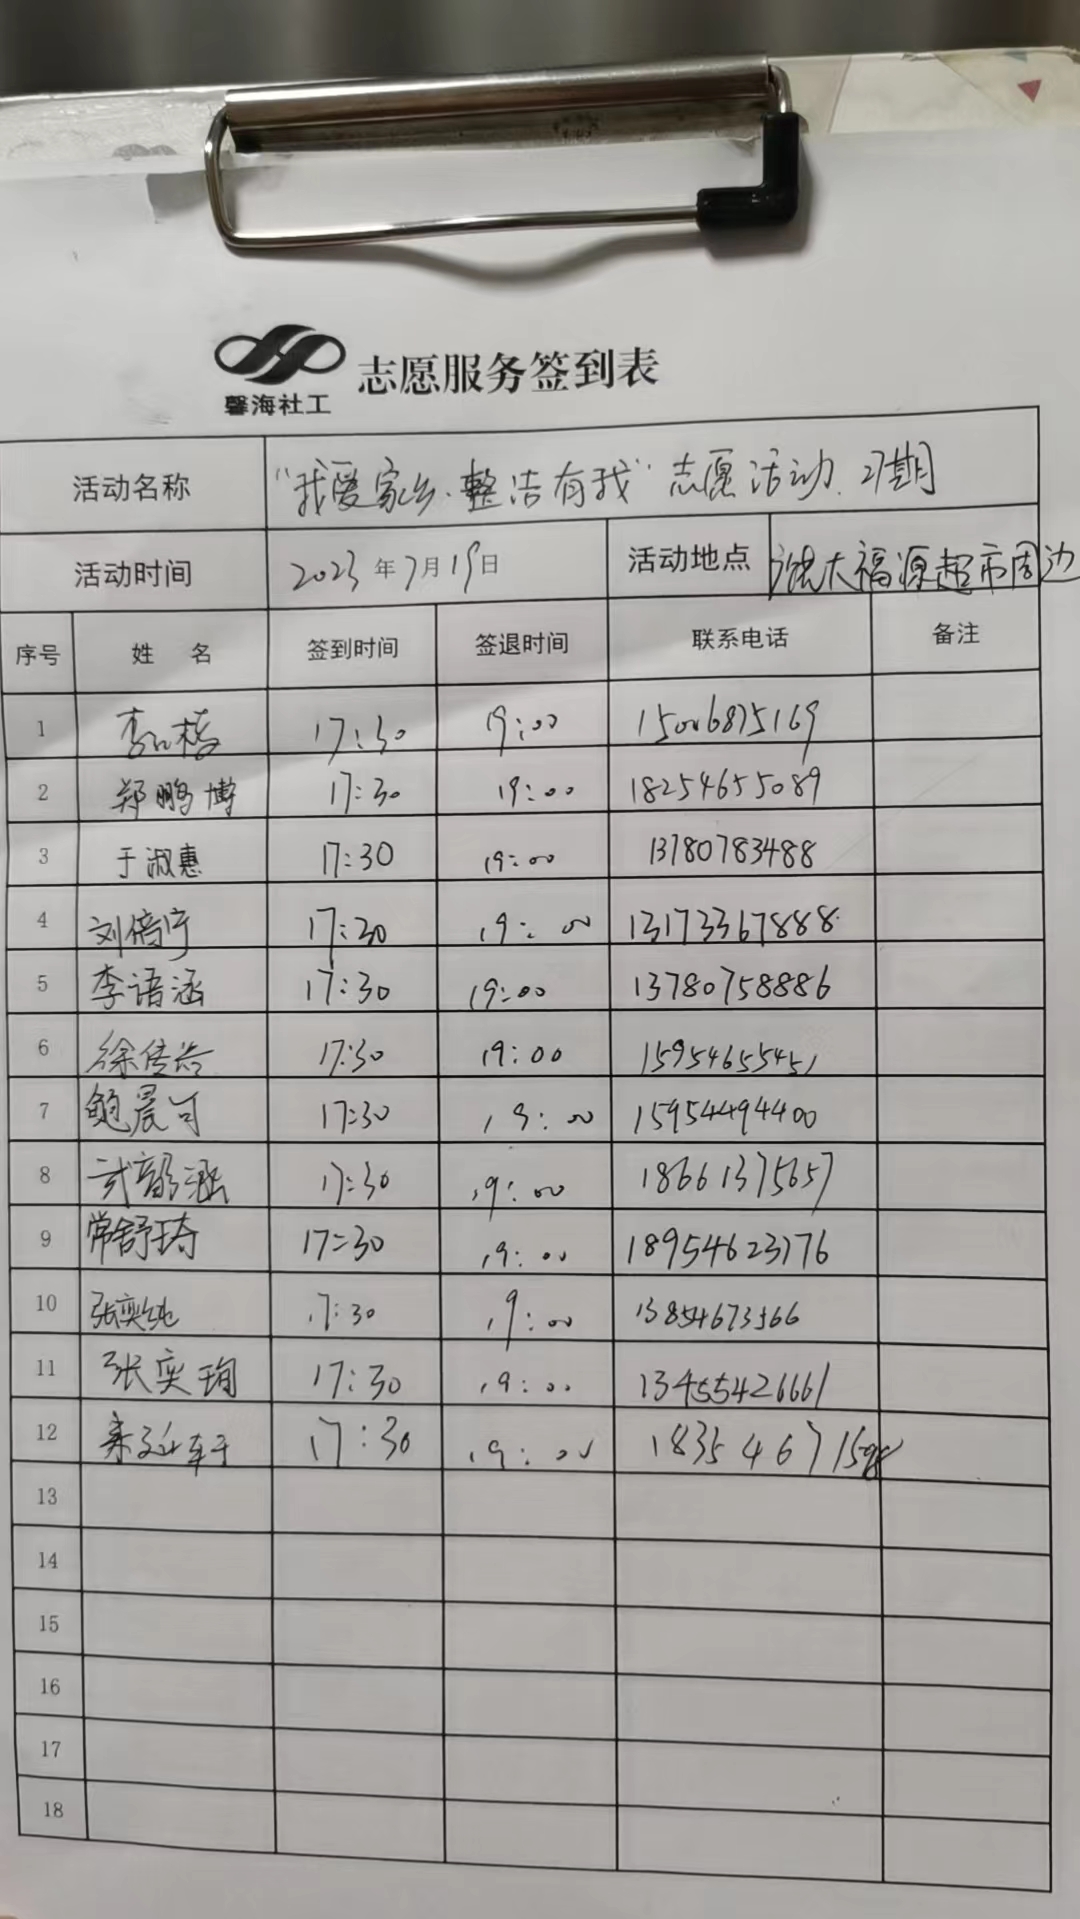 馨海社工 志愿服务签到表
活动名称 "我爱家乡·整洁有我"志愿活动. 27期
活动时间 2023年7月19日 活动地点 大福源超市周边
序号 姓 名 签到时间 签退时间 联系电话 备注
1 17:30 19:00 15006875169
2 郑鹏博 17:30 19:00 18254655089
3 于淑惠 17:30 19:00 13780783488
4 刘倍宁 17:30 19:00 13173367888
5 李语涵 17:30 19:00 13780758886
6 徐传 17:30 19:00 15954655451
7 鲍晨可 17:30 19:00 15954494400
8 武韶涵 17:30 19:00 18661375657
9 常舒琦 17:30 19:00 18954623176
10 张奕纯 17:30 19:00 13854673566
11 张奕珣 17:30 19:00 13455426661
12 17:30 19:00
13
14
15
16
17
18